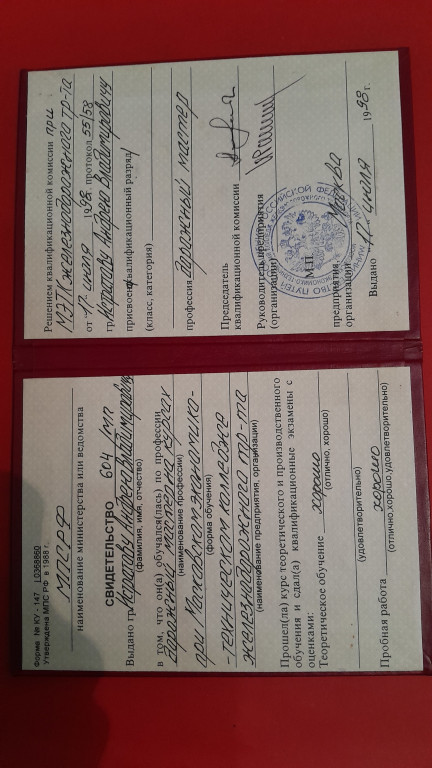 Форма № КУ - 147 L0368860
Утверждена МПС РФ в 1988 г.
МПС РФ
наименование министерства или ведомства
СВИДЕТЕЛЬСТВО 604 /мп
Выдано гр. Андрею Владимировичу
(фамилия, имя, отчество)
в том, что он(а) обучался(лась) по профессии
дорожный мастер на курсах
(наименование профессии)
при Московском экономико-
(форма обучения)
-техническом колледже
железнодорожного тр-та
(наименование предприятия, организации)
Прошел(ла) курс теоретического и производственного
обучения и сдал(а) квалификационные экзамены с
оценками:
Теоретическое обучение хорошо
(отлично, хорошо)
(удовлетворительно)
Пробная работа хорошо
(отлично,хорошо,удовлетворительно)
Решением квалификационной комиссии при
МЭТК железнодорожного тр-та
от "17" июля 1998г. протокол 55/58
гр. Андрею Владимировичу
присвоен квалификационный разряд
(класс, категория)
профессия дорожный мастер
Председатель
квалификационной комиссии
Руководитель предприятия
(организации)
М.П.
предприятия Москва
организации
Выдано 17 июля 1998 г.